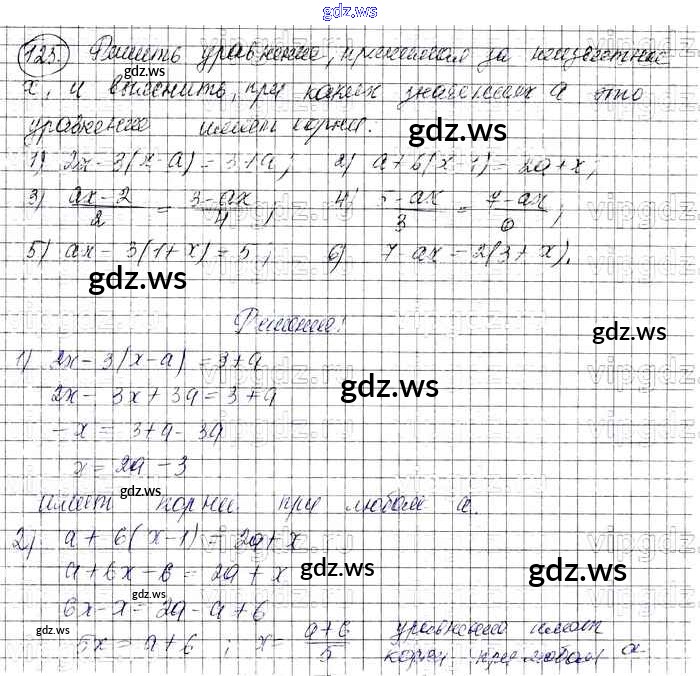 gdz.ws
125. Решить уравнение, принимая за неизвестное
gdz.ws
x, и выяснить, при каких значениях a это
уравнение имеет корни.
gdz.ws
1) 2x - 3(x - a) = 3 + a; 2) a + 6(x - 1) = 2a + x;
3) ax - 2 / 2 = 3 - ax / 4; 4) 5 - ax / 3 = 7 - ax / 6;
5) ax - 3(1 + x) = 5; 6) 7 ax = 2(3 + x).
gdz.ws
Решение:
gdz.ws
1) 2x - 3(x - a) = 3 + a
2x - 3x + 3a = 3 + a
gdz.ws
-x = 3 + a - 3a
x = 2a - 3
gdz.ws
имеет корни при любом a.
2) a + 6(x - 1) = 2a + x
a + 6x - 6 = 2a + x
gdz.ws gdz.ws gdz.ws
6x - x = 2a - a + 6
gdz.ws
5x = a + 6; x = a + 6 / 5 уравнение имеет
корни при любом a
gdz.ws
vipgdz.ru